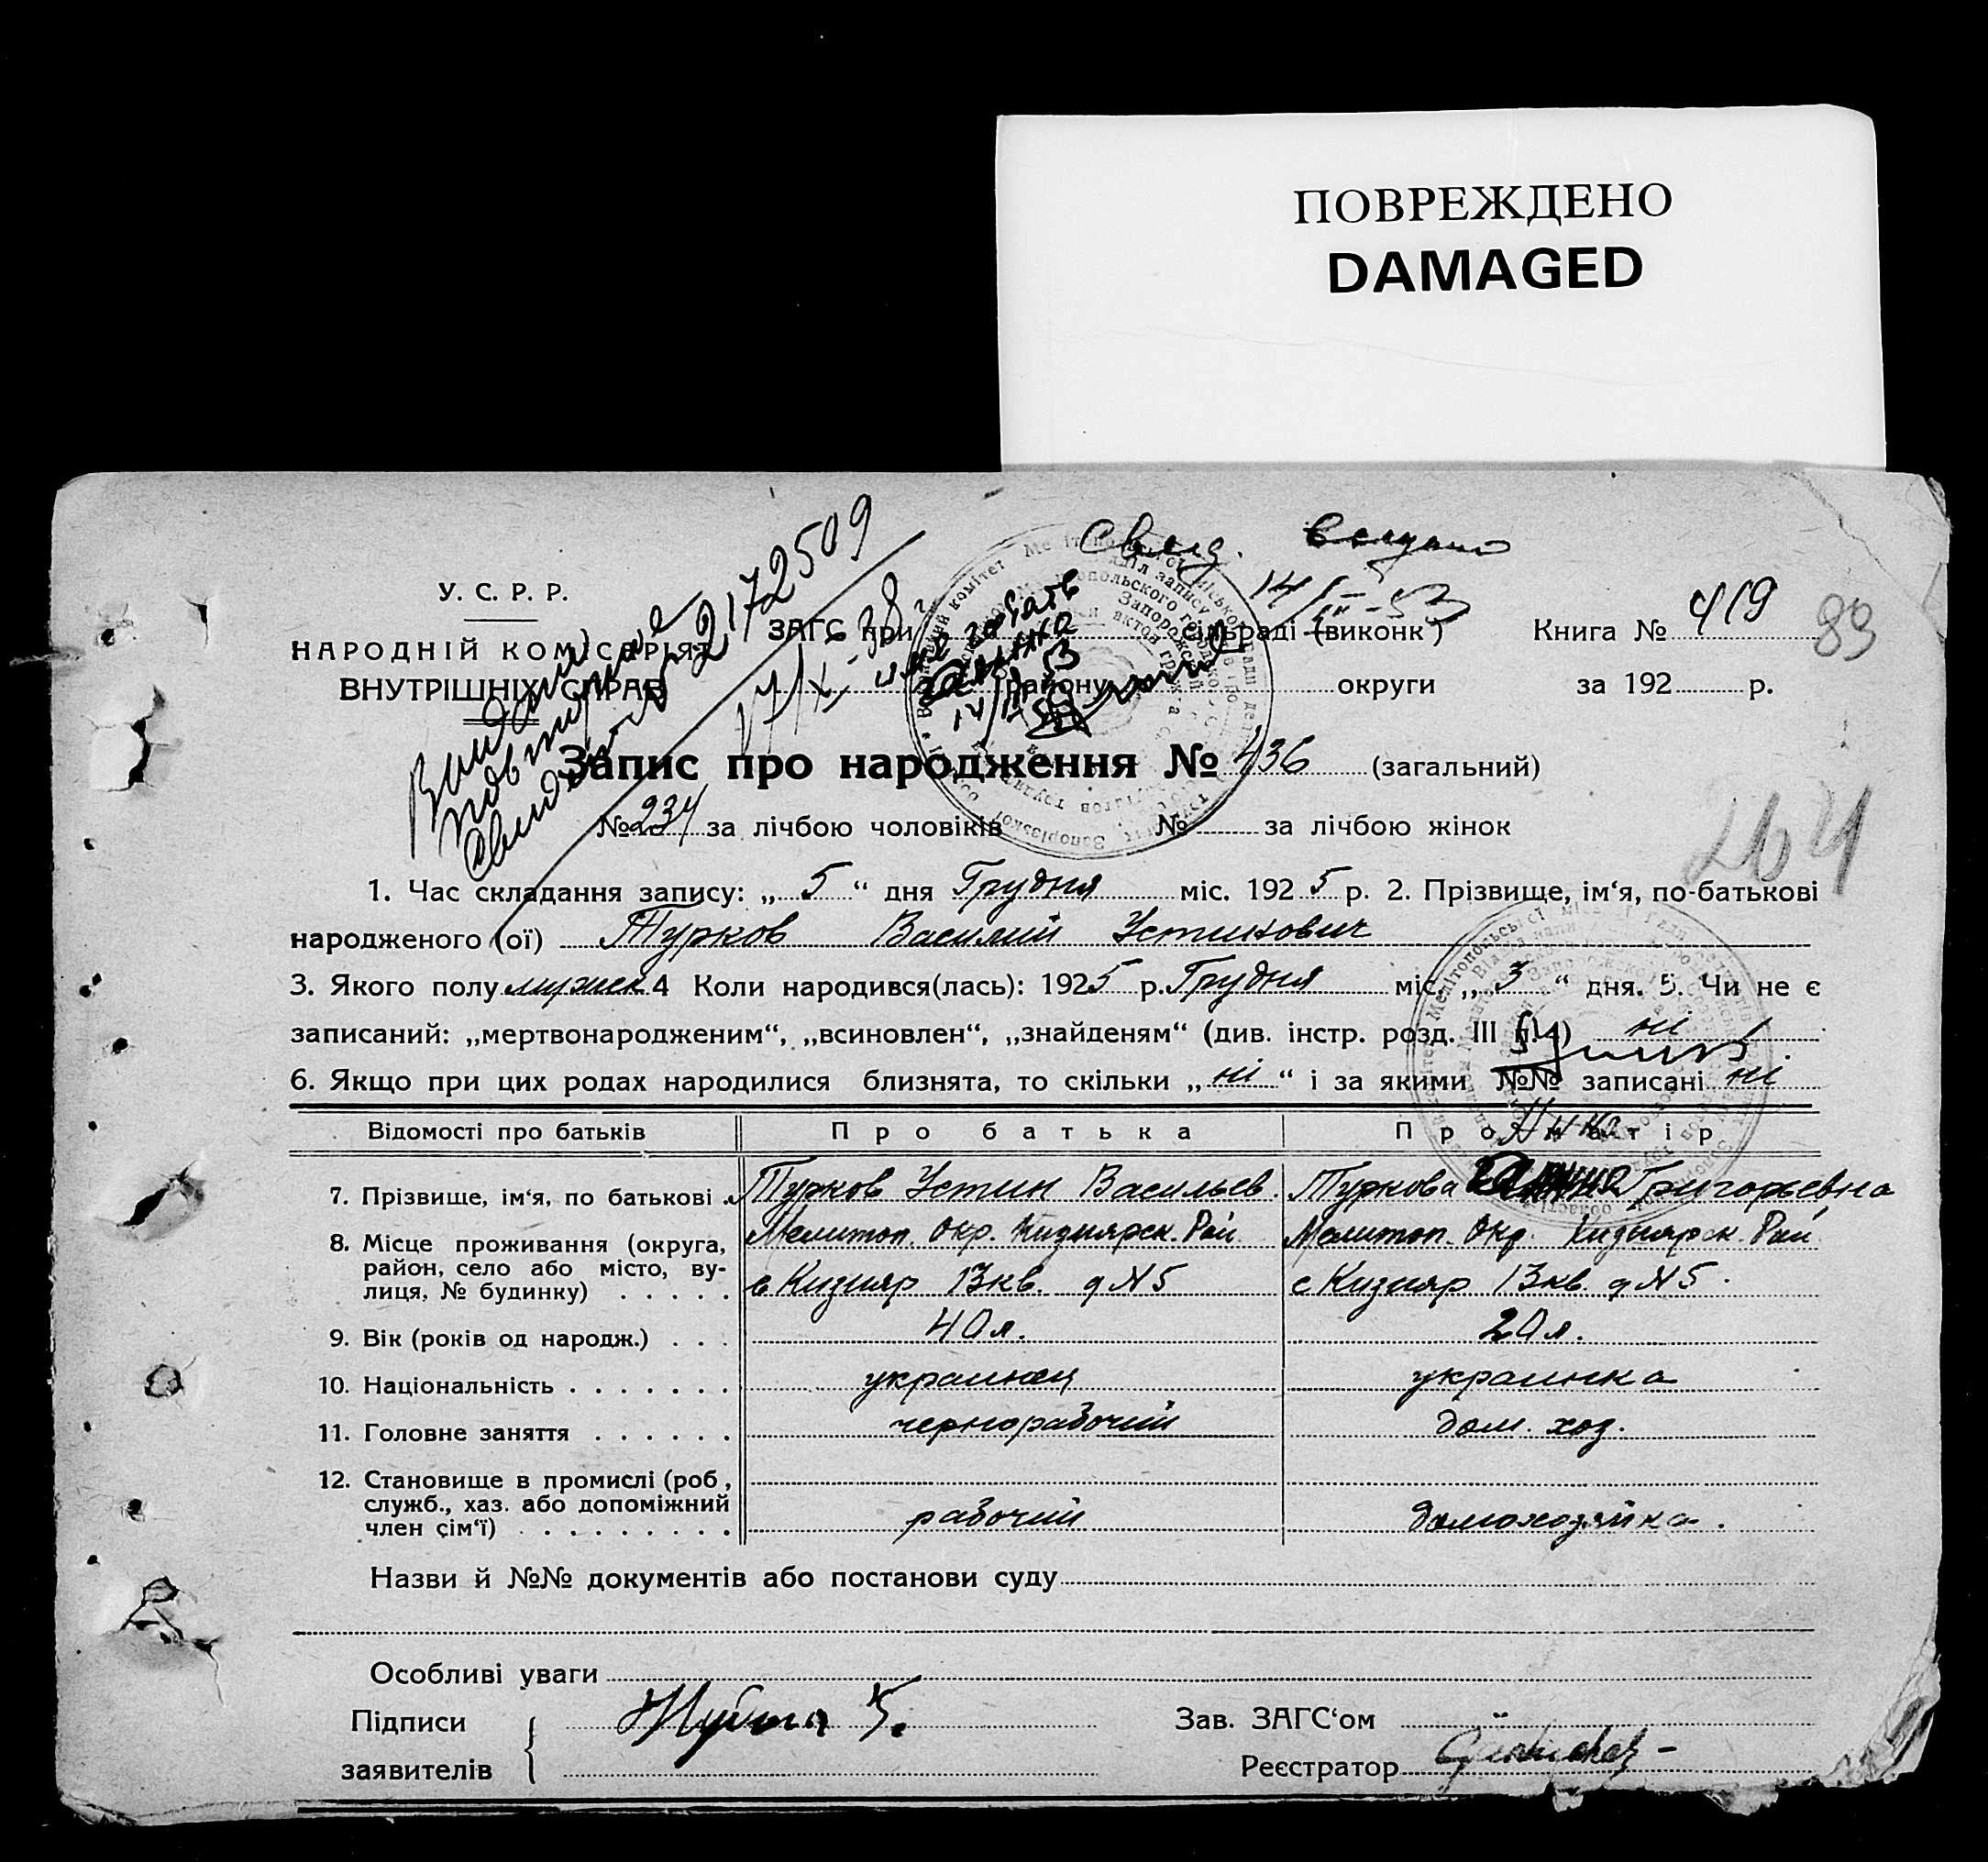 ПОВРЕЖДЕНО
DAMAGED
Свид.
14/III-53
У. С. Р. Р.
НАРОДНІЙ КОМІСАРІЯТ
ВНУТРІШНІХ СПРАВ
2172509
17/X-38
ЗАГС при сільраді (виконк)
району округи
Книга № 419
83
за 192 р.
Запис про народження № 436 (загальний)
№ 234 за лічбою чоловіків № за лічбою жінок
264
1. Час складання запису: „ 5 “ дня Грудня міс. 192 5 р. 2. Прізвище, ім‘я, по-батькові
народженого (ої) Турков Василий Устинович
3. Якого полу мужск 4 Коли народився(лась): 1925 р. Грудня міс. „ 3 “ дня. 5. Чи не є
записаний: „мертвонародженим“, „всиновлен“, „знайденям“ (див. інстр. розд. III п. 4) ні
6. Якщо при цих родах народилися близнята, то скільки „ ні “ і за якими №№ записані ні
Відомості про батьків Про батька Про матір
7. Прізвище, ім‘я, по батькові Турков Устин Васильев. Туркова Григорьевна
8. Місце проживання (округа, район, село або місто, вулиця, № будинку)
Мелитоп. Окр. Кизиярск. Рай. Мелитоп. Окр. Кизиярск. Рай.
с Кизияр 13кв. д N5 с Кизияр 13кв. д N5.
9. Вік (років од народж.) 40 л. 20 л.
10. Національність украинец украинка
11. Головне заняття чернорабочий дом. хоз.
12. Становище в промислі (роб, служб., хаз. або допоміжний член сім‘ї) рабочий домохозяйка.
Назви й №№ документів або постанови суду
Особливі уваги
Підписи
заявителів
Зав. ЗАГС‘ом
Реєстратор